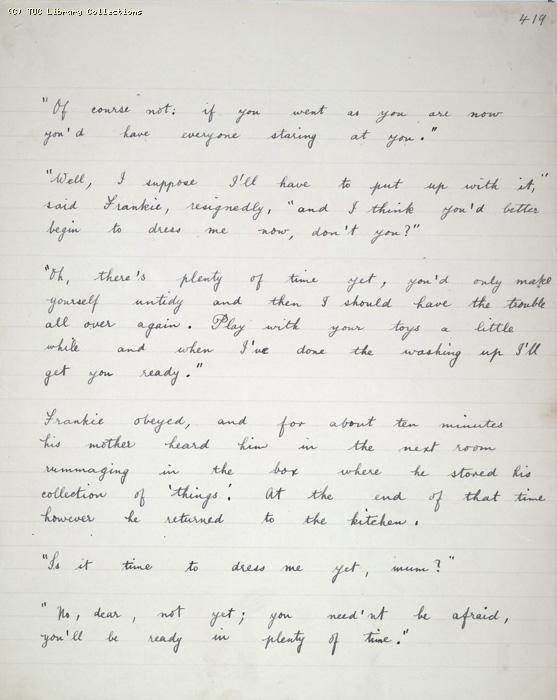 (C) TUC Library Collections
419
"Of course not: if you went as you are now
you'd have everyone staring at you."
"Well, I suppose I'll have to put up with it,"
said Frankie, resignedly, "and I think you'd better
begin to dress me now, don't you?"
"Oh, there's plenty of time yet, you'd only make
yourself untidy and then I should have the trouble
all over again. Play with your toys a little
while and when I've done the washing up I'll
get you ready."
Frankie obeyed, and for about ten minutes
his mother heard him in the next room
rummaging in the box where he stored his
collection of 'things'. At the end of that time
however he returned to the kitchen.
"Is it time to dress me yet, mum?"
"No, dear, not yet; you need'nt be afraid,
you'll be ready in plenty of time."